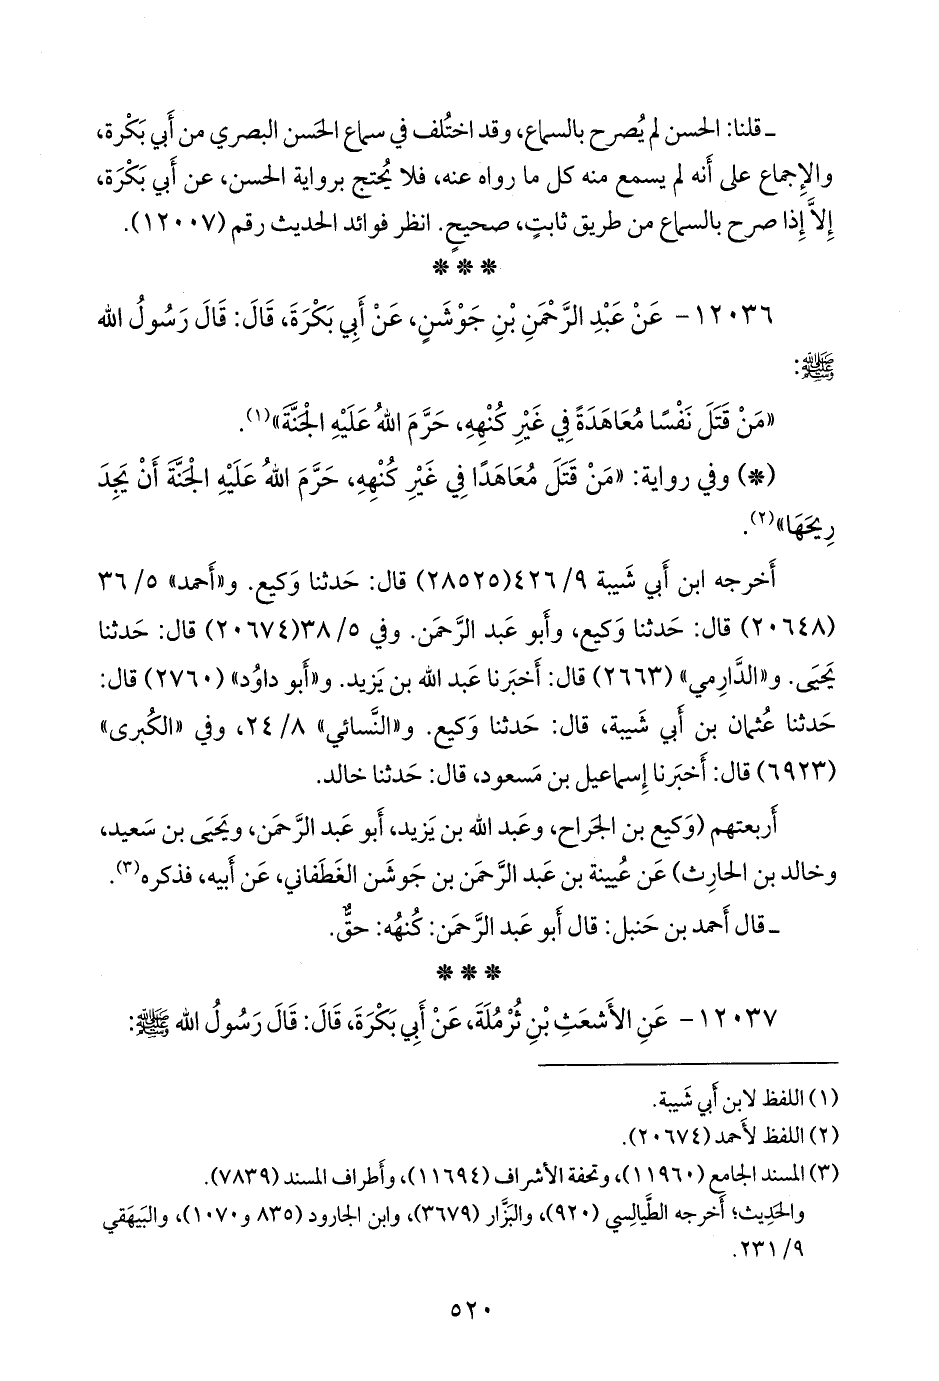 ـ قلنا: الحسن لم يُصرح بالسماع، وقد اختُلف في سماع الحَسن البصري من أَبي بَكْرة،
والإِجماع على أَنه لم يسمع منه كل ما رواه عنه، فلا يُحتج برواية الحسن، عن أَبي بَكْرَة،
إِلاَّ إِذا صرح بالسماع من طريق ثابتٍ، صحيحٍ. انظر فوائد الحديث رقم (١٢٠٠٧).
* * *
١٢٠٣٦- عَنْ عَبْدِ الرَّحْمَنِ بْنِ جَوْشَنٍ، عَنْ أَبِي بَكْرَةَ، قَالَ: قَالَ رَسُولُ الله
ﷺ:
«مَنْ قَتَلَ نَفْسًا مُعَاهَدَةً فِي غَيْرِ كُنْهِهِ، حَرَّمَ اللهُ عَلَيْهِ الْجَنَّةَ»(١).
(*) وفي رواية: «مَنْ قَتَلَ مُعَاهَدًا فِي غَيْرِ كُنْهِهِ، حَرَّمَ اللهُ عَلَيْهِ الْجَنَّةَ أَنْ يَجِدَ
رِيحَهَا»(٢).
أَخرجه ابن أَبي شَيبة ٩/ ٤٢٦(٢٨٥٢٥) قال: حَدثنا وَكيع. و«أَحمد» ٥/ ٣٦
(٢٠٦٤٨) قال: حَدثنا وَكيع، وأَبو عَبد الرَّحمَن. وفي ٥/ ٣٨(٢٠٦٧٤) قال: حَدثنا
يَحيَى. و«الدَّارِمي» (٢٦٦٣) قال: أَخبَرنا عَبد الله بن يَزيد. و«أَبو داوُد» (٢٧٦٠) قال:
حَدثنا عُثمان بن أَبي شَيبة، قال: حَدثنا وَكيع. و«النَّسائي» ٨/ ٢٤، وفي «الكُبرى»
(٦٩٢٣) قال: أَخبَرنا إِسماعيل بن مَسعود، قال: حَدثنا خالد.
أَربعتهم (وَكيع بن الجَراح، وعَبد الله بن يَزيد، أَبو عَبد الرَّحمَن، ويَحيَى بن سَعيد،
وخالد بن الحارِث) عَن عُيينة بن عَبد الرَّحمَن بن جَوشن الغَطَفاني، عَن أَبيه، فذكره(٣).
ـ قال أَحمد بن حَنبل: قال أَبو عَبد الرَّحمَن: كُنهُه: حقٌّ.
* * *
١٢٠٣٧- عَنِ الأَشعَثِ بْنِ ثُرْمُلَةَ، عَنْ أَبِي بَكْرَةَ، قَالَ: قَالَ رَسُولُ الله ﷺ:
(١) اللفظ لابن أَبي شَيبة.
(٢) اللفظ لأَحمد (٢٠٦٧٤).
(٣) المسند الجامع (١١٩٦٠)، وتحفة الأشراف (١١٦٩٤)، وأَطراف المسند (٧٨٣٩).
والحَدِيث؛ أَخرجه الطَّيالِسي (٩٢٠)، والبَزَّار (٣٦٧٩)، وابن الجارود (٨٣٥ و١٠٧٠)، والبَيهَقي
٩/ ٢٣١.
٥٢٠